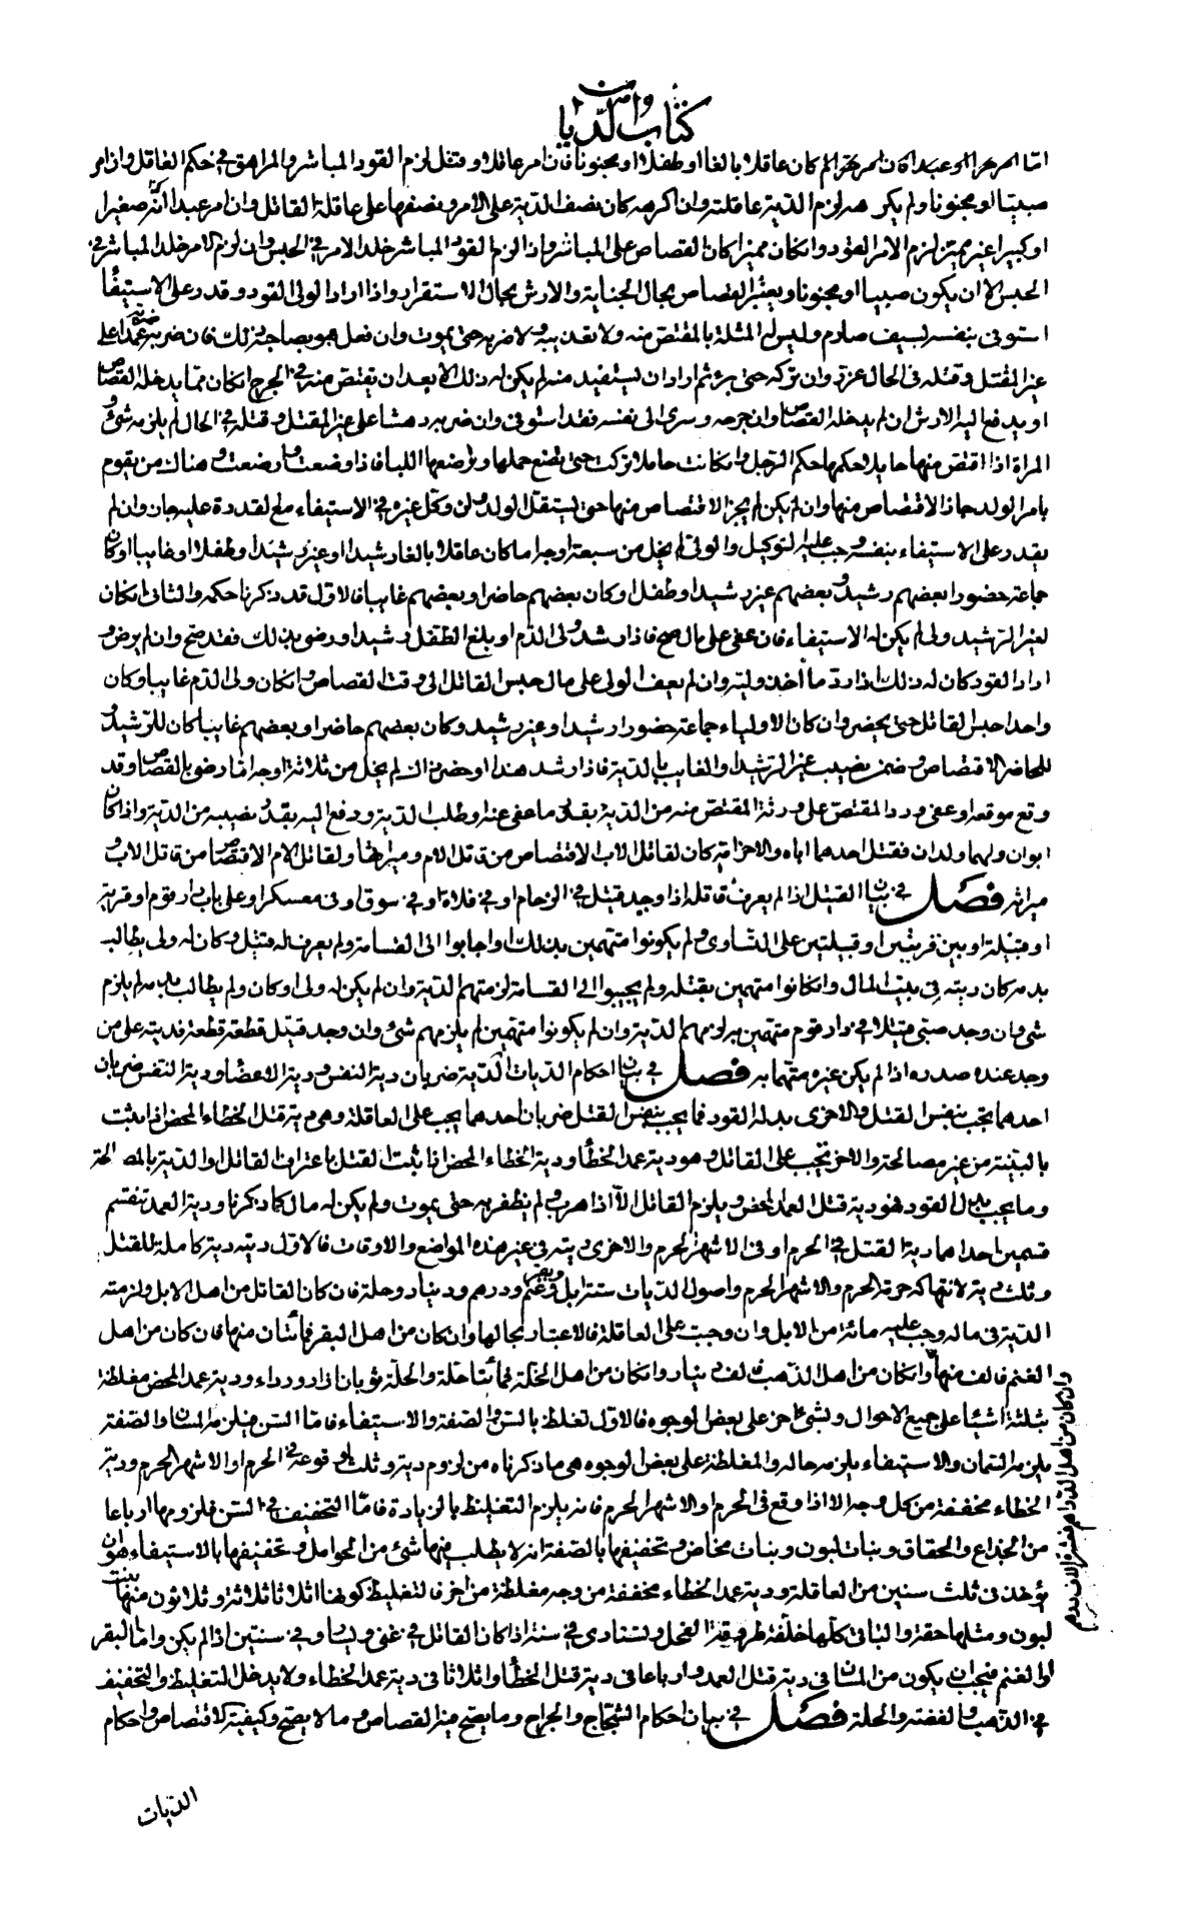 من
كتاب وا
الديا
اما امر حرا او عبدا فان امر حرا لم كان عاقلا بالغا او طفلا او مجنونا فان امر عاقلا وقتل لزم القود المباشر والمراهق في حكم العاقل واذا امر
صبيا او مجنونا ولم يكر هه لزم الدية عاقلته وان اكرهه كان نصف الدية على الامر ونصفها على عاقلة القاتل وان امر عبدا له صغيرا
او كبيرا غير مميز لزم الامر القود وان كان مميزا كان القصاص على المباشر واذا لزم القود المباشر خلد الامر في الحبس وان لزم الامر خلد المباشر في
الحبس الا ان يكون صبيا او مجنونا ويعتبر القصاص بحال الجناية والارش بحال الاستقرار واذا اراد الولى القود وقدر على الاستيفا
استوفى بنفسه بسيف صارم وليس له المثلة بالمقتص منه ولا تعذيبه ولا ضربه حتى يموت وان فعل هو بصاحبه ذلك فان ضربه عمدا على
غير المقتل وقتله فى الحال عزر وان تركه حتى برئ ثم اراد ان يستقيد منه لم يكن له ذلك الا بعد ان يقتص منه في الجرح ان كان مما يدخله القصاص
او يدفع اليه الارش ان لم يدخله القصاص وان جرحه وسرى الى نفسه فقد استوفى وان ضربه دهشا على غير المقتل وقتله في الحال لم يلزمه شئ و
المراة اذا اقتص منها حايلا حكمها حكم الرجل وان كانت حاملا تركت حتى تضع حملها وترضعها اللبا فاذا وضعت وارضعت وهناك من يقوم
بامر الولد جاز الاقتصاص منها وان لم يكن لم يجز الاقتصاص منها حتى يستقل الولد ومن وكل غيره في الاستيفاء مع القدرة عليه جاز وان لم
يقدر على الاستيفاء بنفسه وجب عليه التوكيل والولى لم يخل من سبعة اوجه اما كان عاقلا بالغا رشيدا او غير رشيد او طفلا او غايبا او كان
جماعة حضورا بعضهم رشيد وبعضهم غير رشيد او طفل او كان بعضهم حاضرا وبعضهم غايبا فالاول قد ذكرنا حكمه والثانى ان كان
لغير الرشيد ولى لم يكن له الاستيفاء فان عفى على مال صح فاذا رشد ولى الدم او بلغ الطفل رشيدا ورضى بذلك فقد صح وان لم يرض و
اراد القود كان له ذلك اذا رد ما اخذ وليه وان لم يعف الولى على مال حبس القاتل الى وقت القصاص وان كان ولى الدم غايبا وكان
واحدا حبس القاتل حتى يحضر وان كان الاولياء جماعة حضورا رشيدا وغير رشيد وكان بعضهم حاضرا وبعضهم غايبا كان للرشيد و
للحاضر الاقتصاص وضمن نصيب غير الرشيد والغايب بالدية فاذا رشد هذا او حضر ذاك لم يخل من ثلاثة اوجه اما رضى بالقصاص وقد
وقع موقعه او عفى ورد المقتص على ورثة المقتص منه من الدية بقدر ما عفى عنه او طلب الدية ودفع اليه بقدر نصيبه من الدية واذا كان
ابوان ولهما ولدان فقتل احدهما اباه والاخر امه كان لقاتل الاب الاقتصاص من قاتل الام وميراثها ولقاتل الام الاقتصاص من قاتل الاب و
ميراثه فصل في بيان القتيل اذا لم يعرف قاتله اذا وجد قتيل في الزحام او في فلاة او في سوق او في معسكر او على باب دار قوم او قرية
او قبيلة او بين قريتين او قبيلتين على التساوى ولم يكونوا متهمين بذلك او اجابوا الى القسامة ولم يعرف له قتيل وكان له ولى يطالب
بدمه كان ديته فى بيت المال وان كانوا متهمين بقتله ولم يجيبوا الى القسامة لزمتهم الدية وان لم يكن له ولى او كان ولم يطالب بدمه لم يلزم
شئ وان وجد صبى قتيلا في دار قوم متهمين به لزمهم الدية وان لم يكونوا متهمين لم يلزمهم شئ وان وجد قتيل قطعة قطعة فديته على من
وجد عنده صدره اذا لم يكن غيره متهما به فصل في بيان احكام الديات الدية ضربان دية النفس ودية الاعضاء ودية النفس ضربان
احدهما يجب بنفس القتل والاخرى بدله القود فما يجب بنفس القتل ضربان احدهما يجب على العاقلة وهى دية قتل الخطاء المحض اذا ثبت
بالبينة من غير مصالحة والاخر تجب على القاتل وهو دية عمد الخطأ ودية الخطاء المحض اذا ثبت القتل باعتراف القاتل او الدية بالمصالحة
وما يجب بدل القود فهو دية قتل العمد المحض ويلزم القاتل الا اذا هرب ولم يظفر به حتى يموت ولم يكن له مال كما ذكرنا ودية العمد تنقسم
قسمين احداهما دية القتل في الحرم او فى الاشهر الحرم والاخرى ديته فى غير هذه المواضع والاوقات فالاول ديته دية كاملة للقتل
وثلث دية لانتهاكه حرمة الحرم والاشهر الحرم واصول الديات ستة ابل وبقر وغنم ودرهم ودينار وحلة فان كان القاتل من اهل الابل ولزمته
الدية فى ماله وجب عليه مائة من الابل وان وجبت على العاقلة فالاعتبار بحالها وان كان من اهل البقر فمأتان منها فان كان من اهل
الغنم فالف منها وان كان من اهل الذهب فالف دينار وان كان من اهل الحلة فمأتا حلة والحلة ثوبان ازار ورداء ودية عمد المحض مغلظة
بثلثة اشياء على جميع الاحوال وبشئ اخر على بعض الوجوه فالاول تغلظ بالسن والصفة والاستيفاء فاما السن فيلزم المسان والصفة
يلزم السمان والاستيفاء يلزم حاله والمغلظة على بعض الوجوه هى ما ذكرناه من لزوم دية وثلث لوقوعه في الحرم او الاشهر الحرم ودية
الخطاء مخففة من كل وجه الا اذا وقع فى الحرم او الاشهر الحرم فانه يلزم التغليظ بالزيادة فاما التخفيف في السن فلزومها ارباعا
من الجذاع والحقاق وبنات لبون وبنات مخاض وتخفيفها بالصفة انه لا يطلب فيها شئ من الحوامل وتخفيفها بالاستيفاء هو ان
تؤخذ فى ثلث سنين من العاقلة ودية عمد الخطاء مخففة من وجه مغلظة من اخر فالتغليظ كونها اثلاثا ثلاثة وثلاثون منها بنت
لبون ومثلها حقة والباقى كلها خلفة طروقة الفحل وتستادى في سنة اذا كان القاتل في غنى ويسار وفي سنتين اذا لم يكن واما البقر
والغنم فيجب ان يكون من المسان فى دية قتل العمد وارباعا فى دية قتل الخطأ واثلاثا فى دية عمد الخطاء ولا يدخل التغليظ والتخفيف
في الذهب والفضة والحلة فصل في بيان احكام الشجاج والجراح وما يصح فيه القصاص وما لا يصح وكيفية الاقتصاص واحكام
وان كان من اهل الدراهم فعشرة الاف درهم
الديات